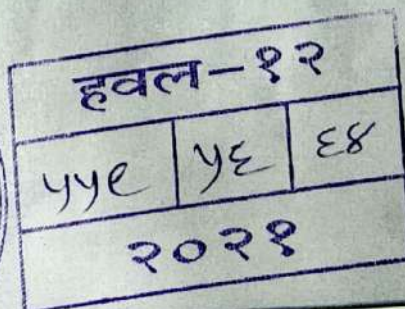 हवल-१२
५५९ ५६ ६४
२०२१